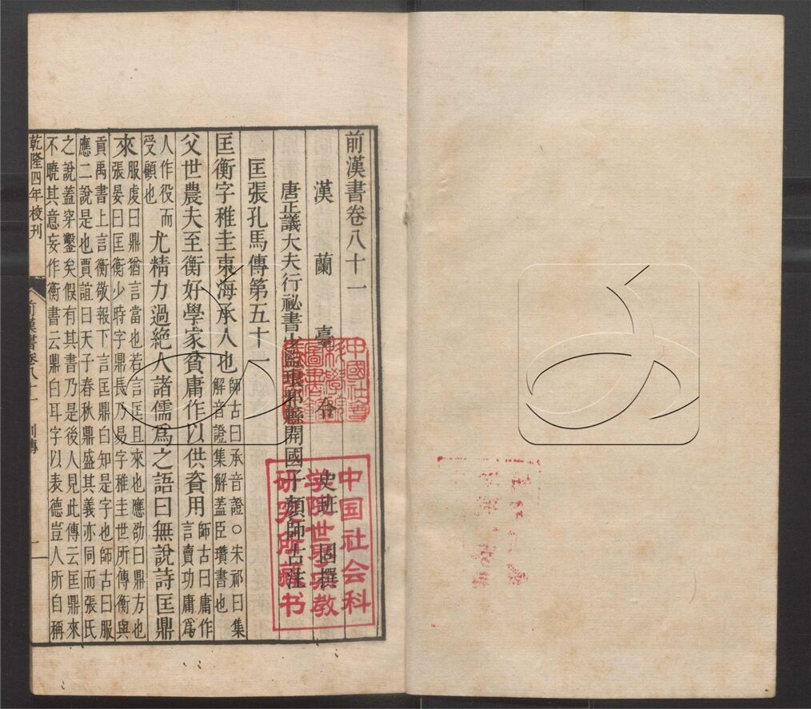 前漢書卷八十一
漢蘭臺令史班固撰
唐正議大夫行祕書少監琅邪縣開國子顏師古注
匡張孔馬傳第五十一
匡衡字稚圭東海承人也師古曰承音證○宋祁曰集解音證集解蓋臣瓚書也
父世農夫至衡好學家貧庸作以供資用師古曰庸作言賣功庸爲
人作役而受顧也尤精力過絕人諸儒爲之語曰無說詩匡鼎
來服虔曰鼎猶言當也若言匡且來也應劭曰鼎方也張晏曰匡衡少時字鼎長乃易字稚圭世所傳衡與
貢禹書上言衡敬報下言匡鼎白知是字也師古曰服應二說是也賈誼曰天子春秋鼎盛其義亦同而張氏
之說蓋穿鑿矣假有其書乃是後人見此傳云匡鼎來不曉其意妄作衡書云鼎白耳字以表德豈人所自稱
乾隆四年校刊
前漢書卷八十一
列傳
一
中國社會
中国社会科
学院世界宗教
研究所藏书